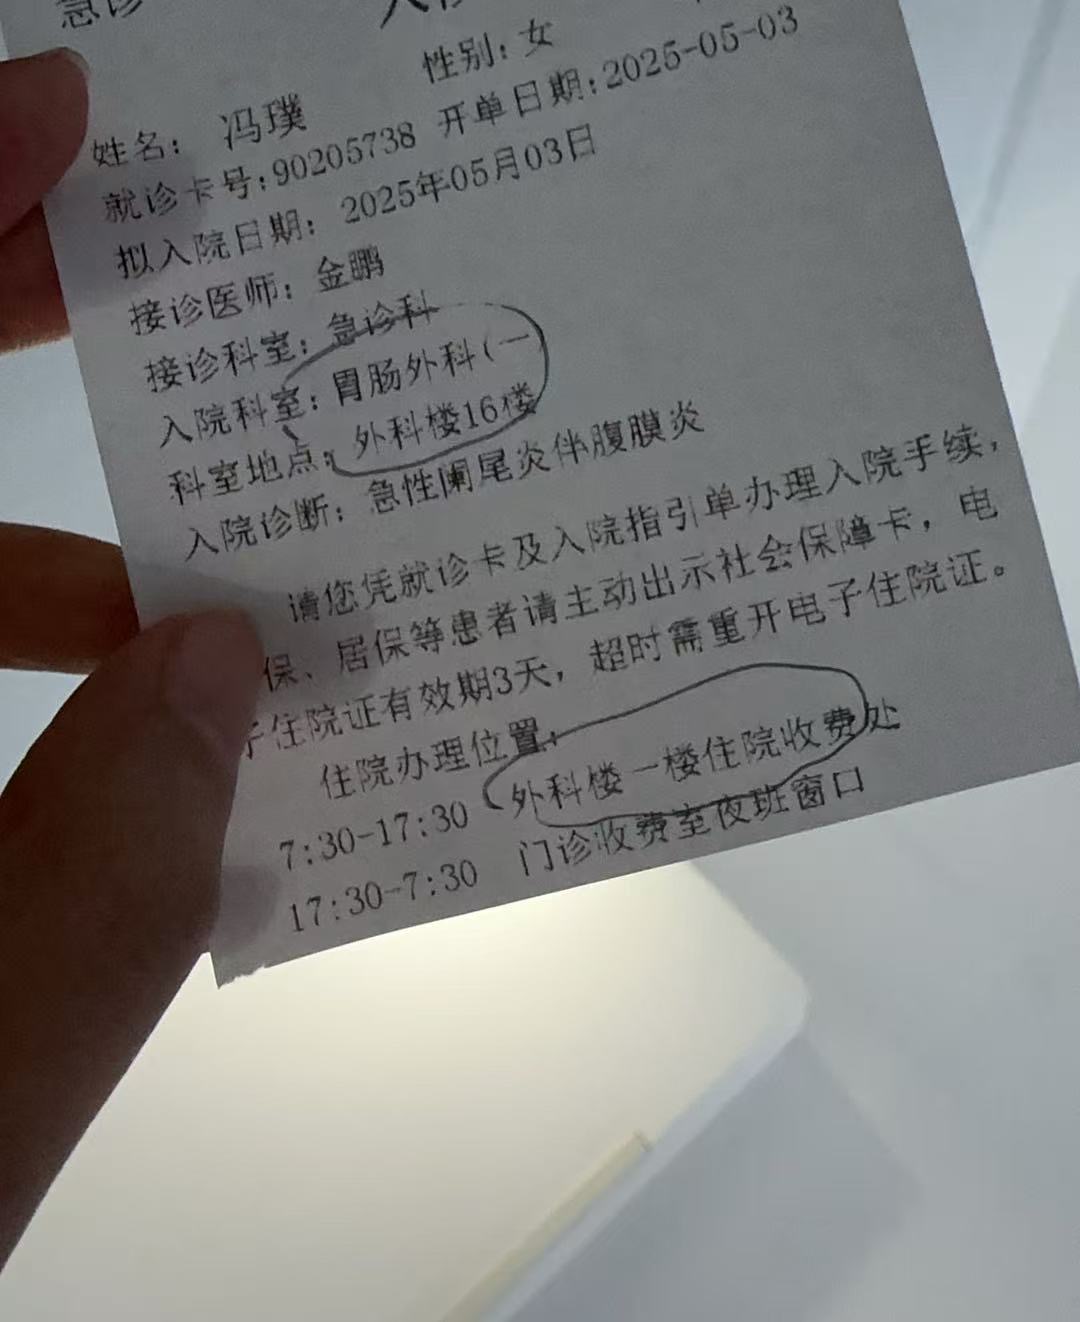 急诊
性别：女
姓名： 冯璞
就诊卡号:90205738 开单日期:2025-05-03
拟入院日期： 2025年05月03日
接诊医师： 金鹏
接诊科室： 急诊科
入院科室： 胃肠外科(一)
科室地点： 外科楼16楼
入院诊断： 急性阑尾炎伴腹膜炎
请您凭就诊卡及入院指引单办理入院手续，
保、居保等患者请主动出示社会保障卡，电
子住院证有效期3天，超时需重开电子住院证。
住院办理位置：
7:30-17:30 外科楼一楼住院收费处
17:30-7:30 门诊收费室夜班窗口